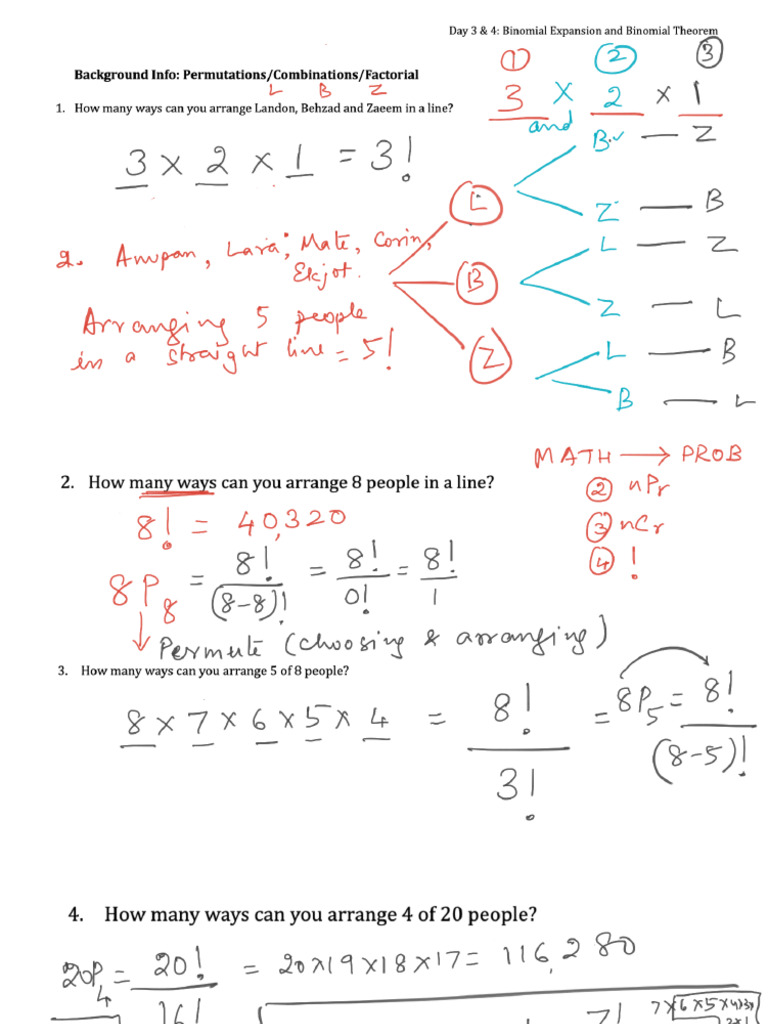 Day 3 & 4: Binomial Expansion and Binomial Theorem
Background Info: Permutations/Combinations/Factorial
L B Z
1. How many ways can you arrange Landon, Behzad and Zaeem in a line?
① ② ③
3 x 2 x 1
and
3 x 2 x 1 = 3!
L
B — Z
Z — B
B
L — Z
Z — L
Z
L — B
B — L
2. Anupan, Lara, Mate, Corin,
Ekjot.
Arranging 5 people
in a straight line = 5!
MATH → PROB
② nPr
③ nCr
④ !
2. How many ways can you arrange 8 people in a line?
8! = 40,320
8P8 = 8!/(8-8)! = 8!/0! = 8!/1
↓ Permute (choosing & arranging)
3. How many ways can you arrange 5 of 8 people?
8 x 7 x 6 x 5 x 4 = 8!/3! = 8P5 = 8!/(8-5)!
4. How many ways can you arrange 4 of 20 people?
20P4 = 20!/16! = 20x19x18x17 = 116,280